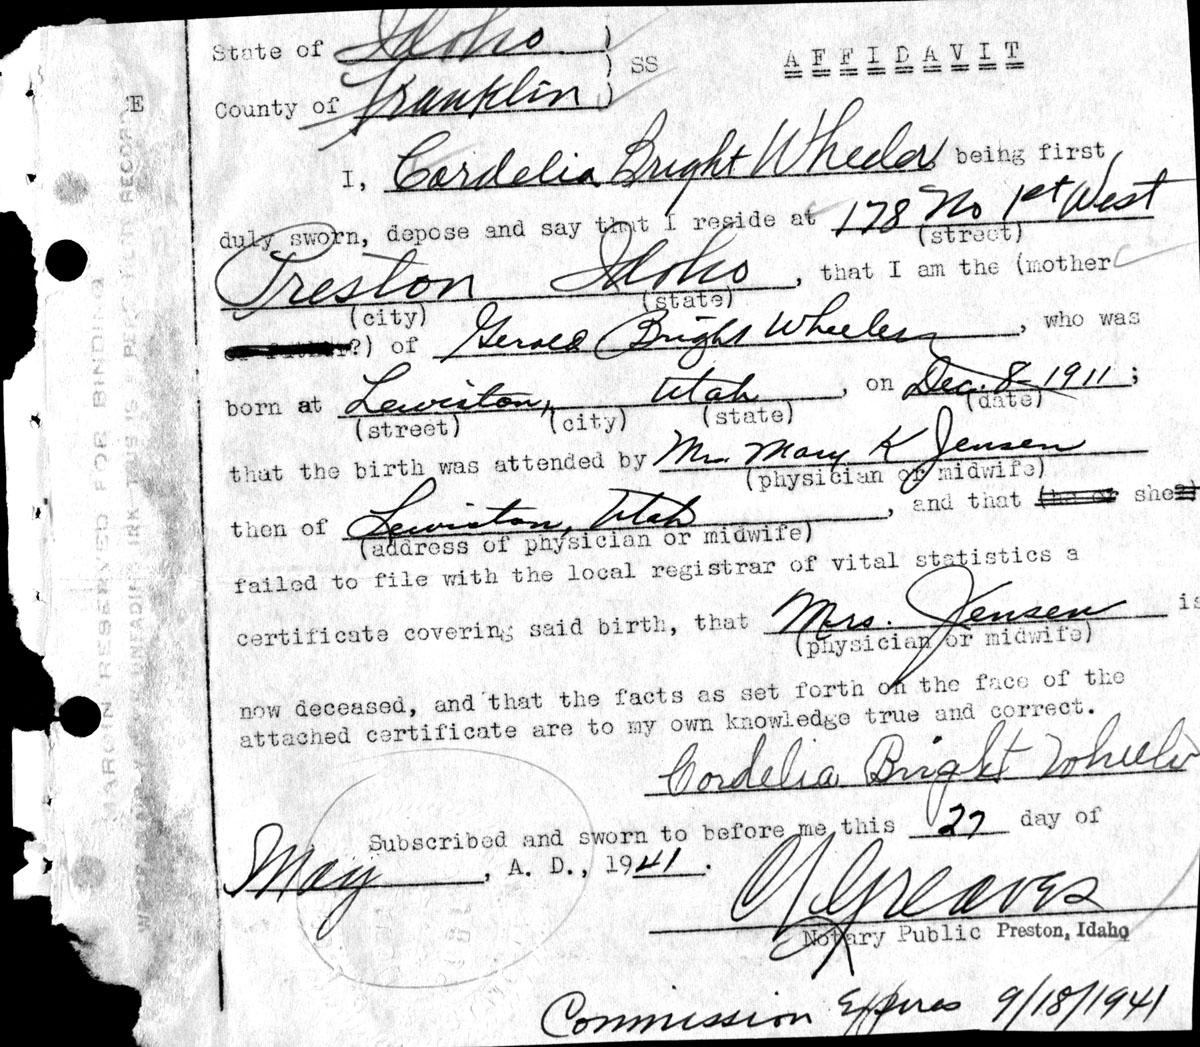 State of Idaho )
) SS
AFFIDAVIT
County of Franklin )
E
I, Cordelia Bright Wheeler being first
duly sworn, depose and say that I reside at 178 No 1st West
(street)
Preston Idaho, that I am the (mother
(city) (state)
or father?) of Gerald Bright Wheeler, who was
born at Lewiston, Utah, on Dec. 8 - 1911;
(street) (city) (state) (date)
that the birth was attended by Mrs. Mary K Jensen
(physician or midwife)
then of Lewiston, Utah, and that (he or she?)
(address of physician or midwife)
failed to file with the local registrar of vital statistics a
certificate covering said birth, that Mrs. Jensen is
(physician or midwife)
now deceased, and that the facts as set forth on the face of the
attached certificate are to my own knowledge true and correct.
Cordelia Bright Wheeler
Subscribed and sworn to before me this 27 day of
May, A. D., 1941.
Greaves
Notary Public Preston, Idaho
Commission Expires 9/18/1941
MARGIN RESERVED FOR BINDING